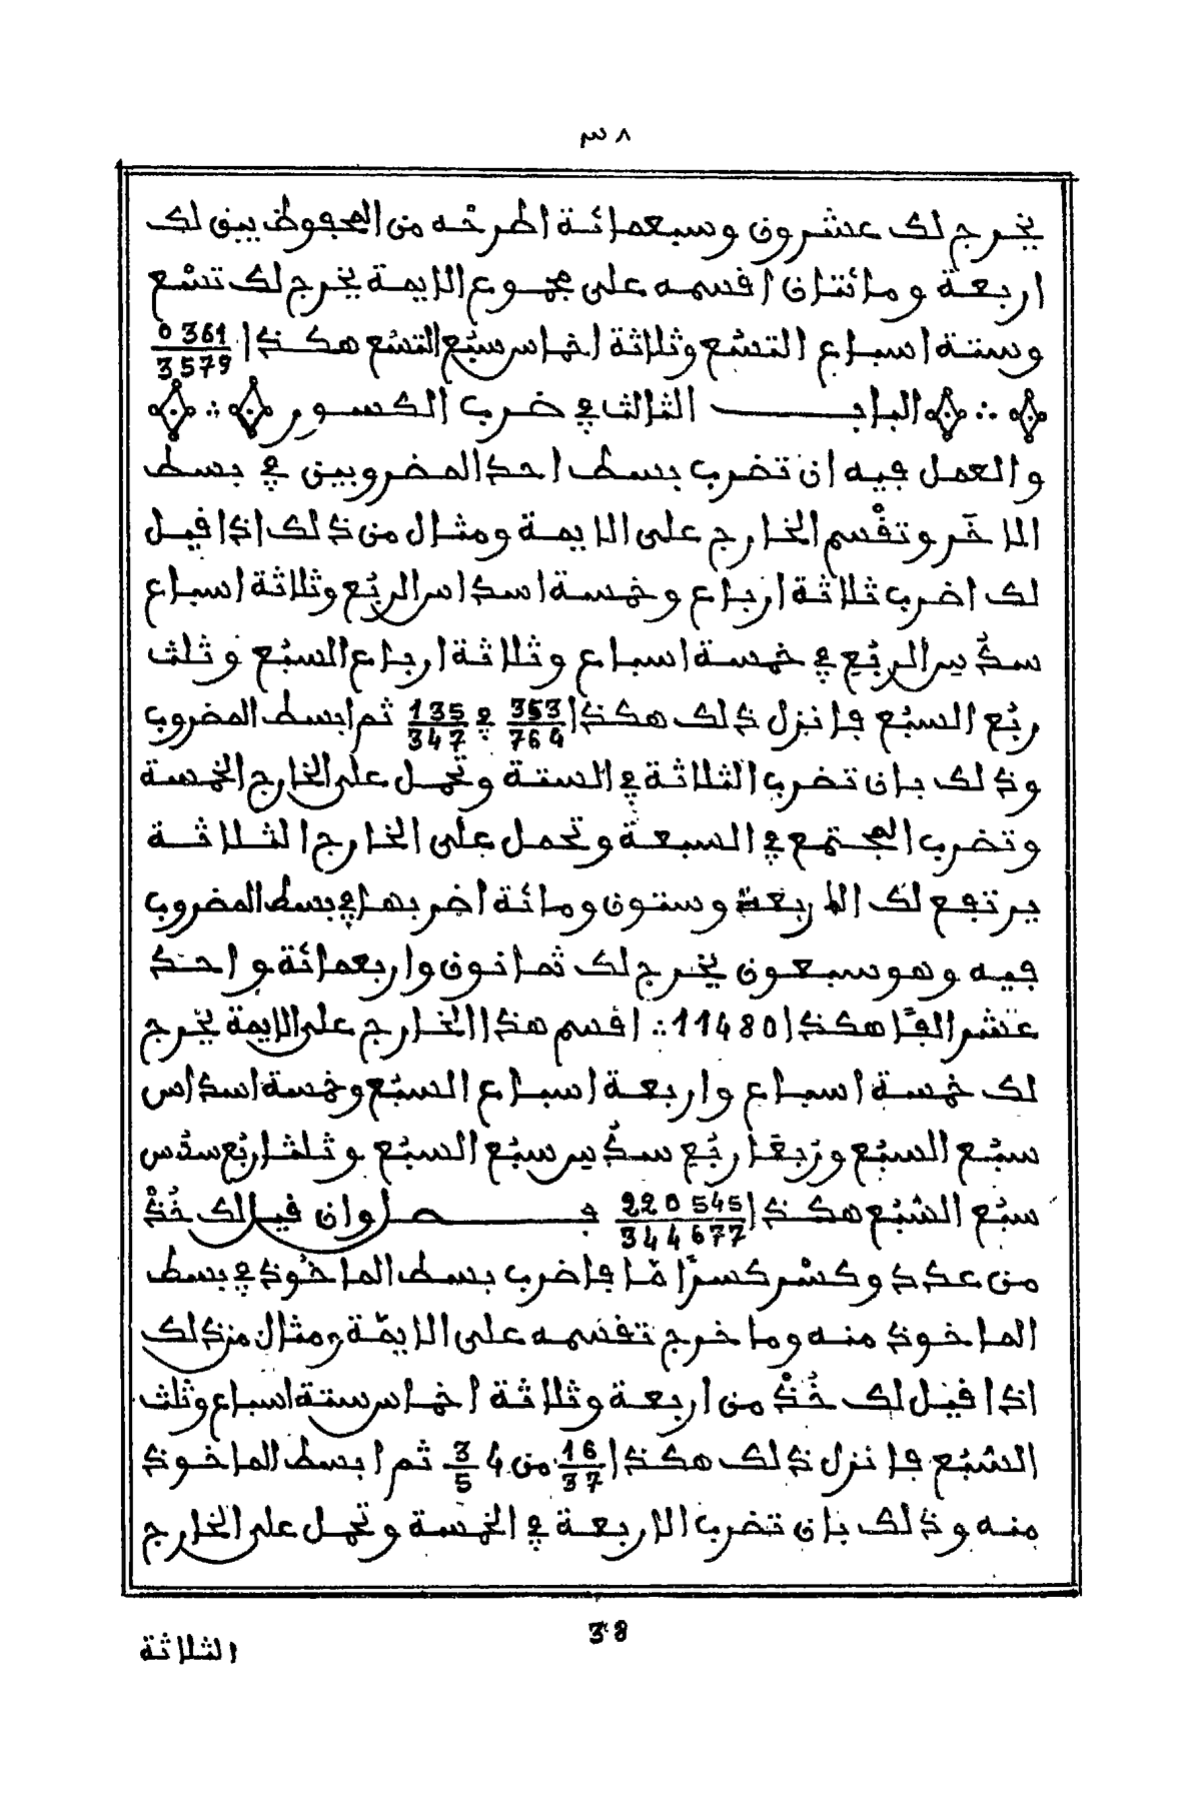 ٣٨
يخرج لك عشرون وسبعمائة اطرحْه من المحفوظ يبق لك
اربعة ومائتان اقسمه على مجموع الايمة يخرج لك تسْع
وستة اسباع التسُع وثلاثة اخماس سبُع التسُع هكذا 0361/3579
الباب الثالث في ضرب الكسور
والعمل فيه ان تضرب بسط احد المضروبين في بسط
الاخَر وتقْسم الخارج على الايمة ومثال من ذلك اذا قيل
لك اضرب ثلاثة ارباع وخمسة اسداس الربُع وثلاثة اسباع
سدُس الربُع في خمسة اسباع وثلاثة ارباع السبُع وثلث
ربُع السبُع فانزل ذلك هكذا 353/764 في 135/347 ثم ابسط المضروب
وذلك بان تضرب الثلاثة في الستة وتحمل على الخارج الخمسة
وتضرب المجتمع في السبعة وتحمل على الخارج الثلاثة
يرتفع لك اربعة وستون ومائة اضربها في بسط المضروب
فيه وهو سبعون يخرج لك ثمانون واربعمائة واحد
عشر الفًا هكذا 11480 ∴ اقسم هذا الخارج على الايمة يخرج
لك خمسة اسباع واربعة اسباع السبُع وخمسة اسداس
سبُع السبُع وربعَا ربُع سدُس سبُع السبُع وثلثا ربُع سدُس
سبُع السُبُع هكذا 220545/344677 فصل وان قيل لك خُذْ
من عدد وكسْر كسرًا مّا فاضرب بسط الماخوذ في بسط
الماخوذ منه وما خرج تقسمه على الايمّة ومثال من ذلك
اذا قيل لك خُذْ من اربعة وثلاثة اخماس ستة اسباع وثلث
السُبُع فانزل ذلك هكذا 16/37 من 4 3/5 ثم ابسط الماخوذ
منه وذلك بان تضرب الاربعة في الخمسة وتحمل على الخارج
38
الثلاثة